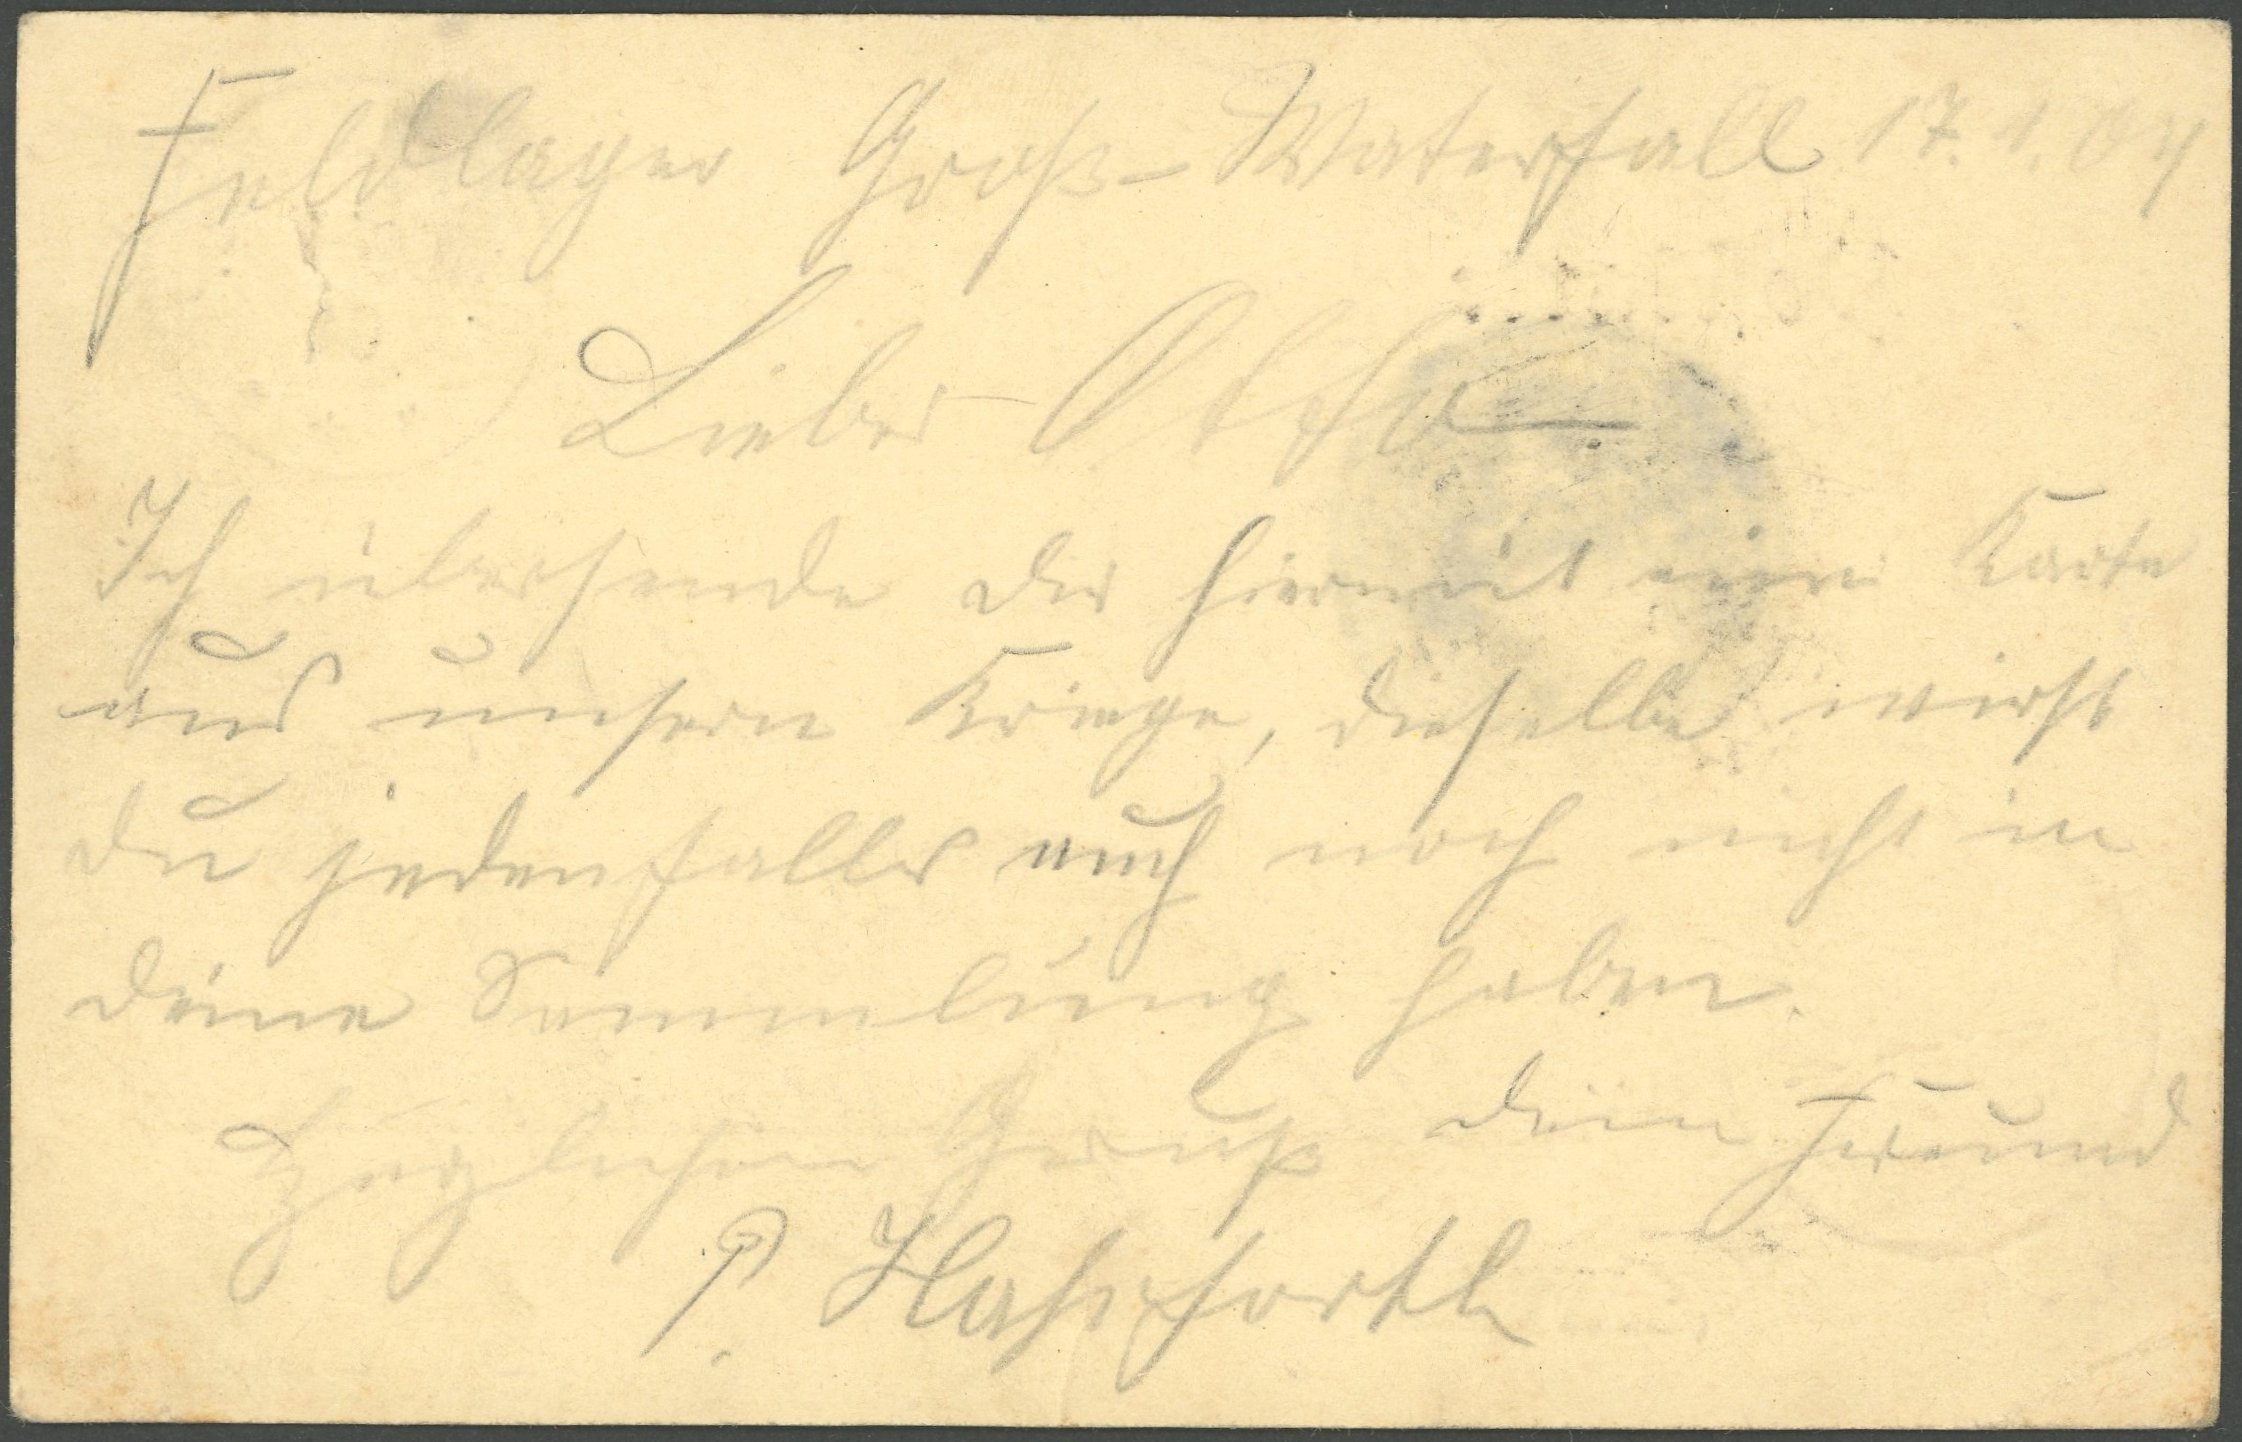 Feldlager Groß-Waterfall 17.1.04
Lieber Otto
Ich übersende dir hiermit eine Karte
aus unsern Kriege, dieselbe wirst
du jedenfalls auch noch nicht in
deine Sammlung haben.
Gruß dein Freund
P.